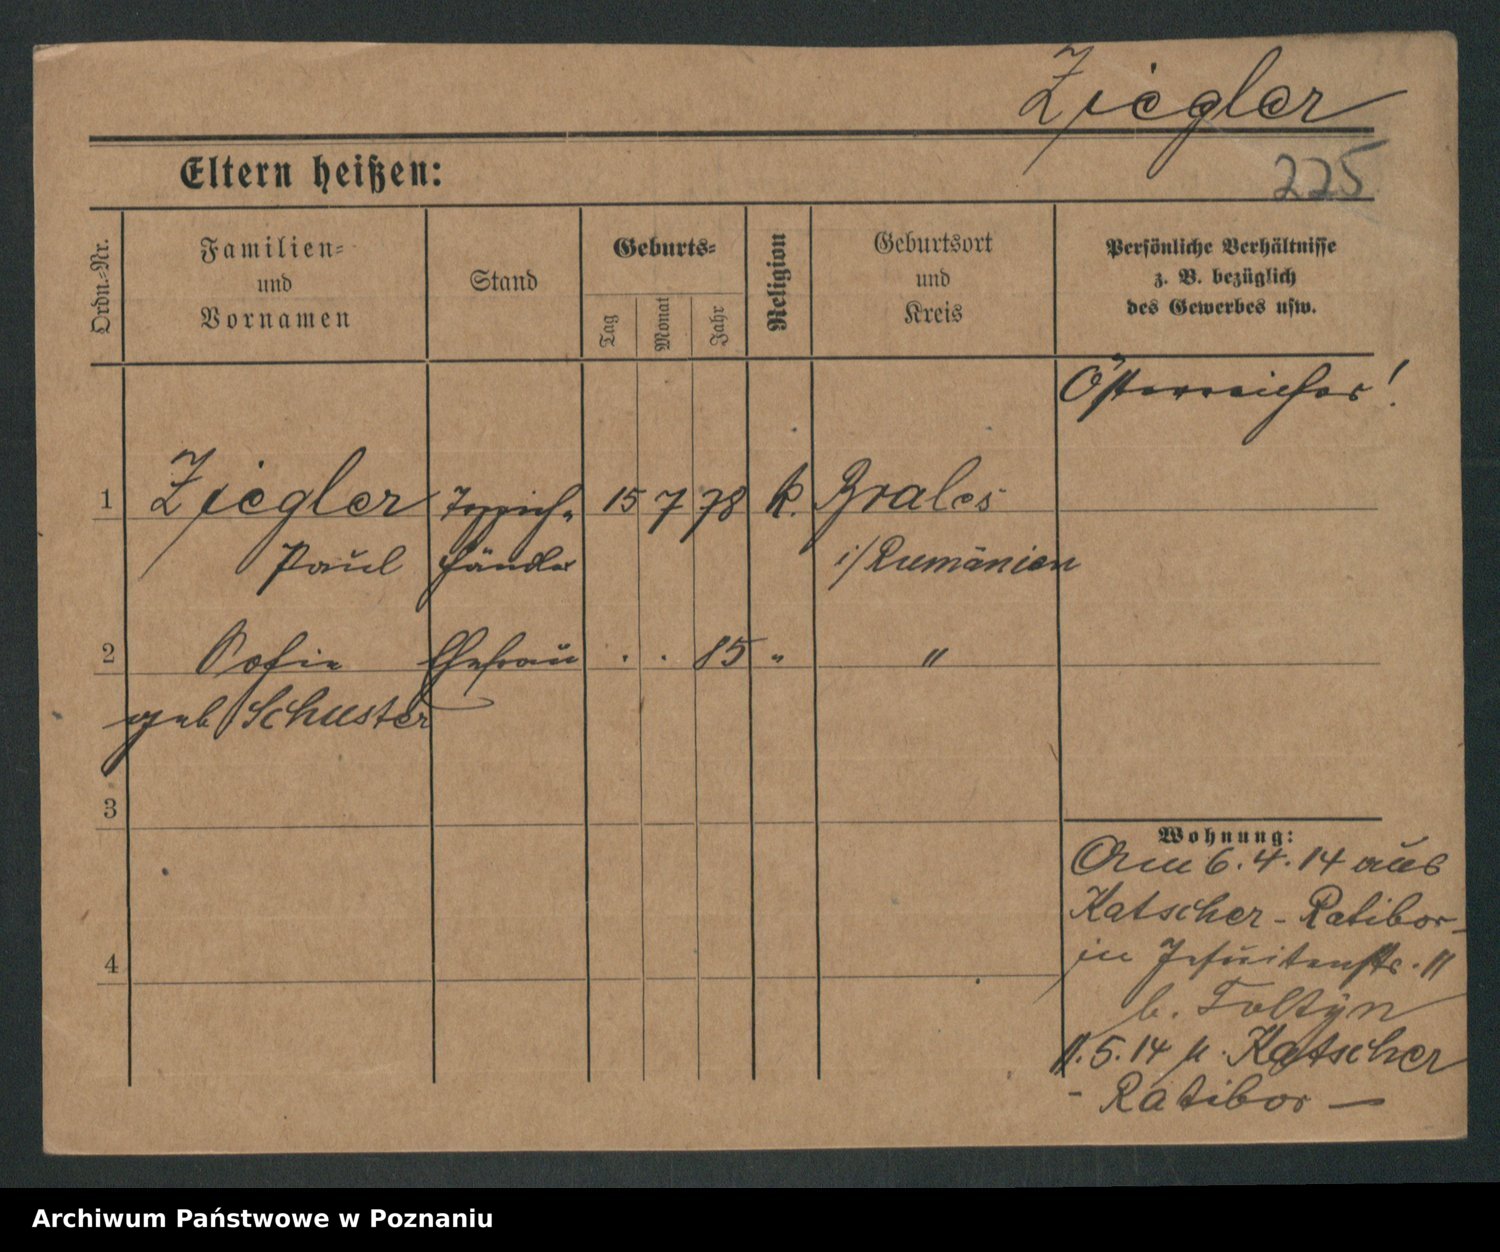 Ziegler
225
Eltern heißen:
Ordn.-Nr.
Familien-
und
Vornamen
Stand
Geburts-
Tag
Monat
Jahr
Religion
Geburtsort
und
Kreis
Persönliche Verhältnisse
z. B. bezüglich
des Gewerbes usw.
Österreicher!
1 Ziegler Teppich- 15 7 78 k. Brales
Paul händler i/Rumänien
2 Sofie Ehefrau . . 85 " "
geb Schuster
3
4
Wohnung:
Am 6.4.14 aus
Katscher - Ratibor -
in Jesuitenstr. 11
b. Foltyn
11.5.14 n. Katscher
- Ratibor —
Archiwum Państwowe w Poznaniu